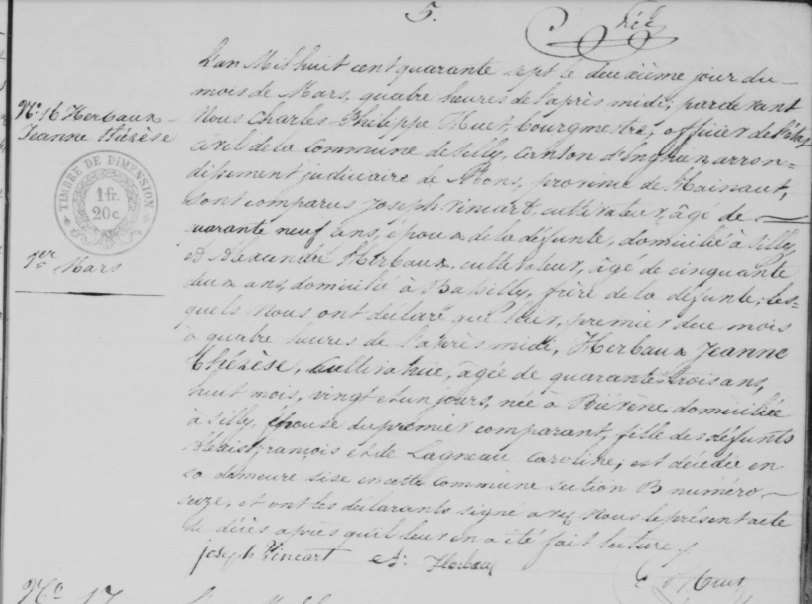 5.
N° 16 Herbaux
Jeanne thérèse
TIMBRE DE DIMENSION
1 fr.
20 c.
1er Mars
L'an Mil huit cent quarante sept le deuxième jour du
mois de Mars, quatre heures de l'après midi, pardevant
Nous Charles Philippe Huet, bourgmestre, officier de l'état
civil de la Commune de Silly, canton d'Enghien arron=
dissement judiciaire de Mons, province de Hainaut,
sont comparus Joseph Vincart, cultivateur, âgé de
quarante neuf ans, époux de la défunte, domicilié à Silly,
et Alexandre Herbaux, cultivateur, âgé de cinquante
deux ans, domicilié à Bassilly, frère de la défunte; les=
quels nous ont déclaré que hier, premier du mois
à quatre heures de l'après midi, Herbaux Jeanne
Thérèse, cultivatrice, âgée de quarante trois ans,
huit mois, vingt et un jours, née à Biévène domiciliée
à Silly, épouse du premier comparant, fille des défunts
François et de Lagneau Caroline; est décédée en
sa demeure sise en cette commune section B numéro
et ont les déclarants signé avec Nous le présent acte
de décès après qu'il leur en a été fait lecture.
joseph Vincart Herbaux
Huet
N° 17